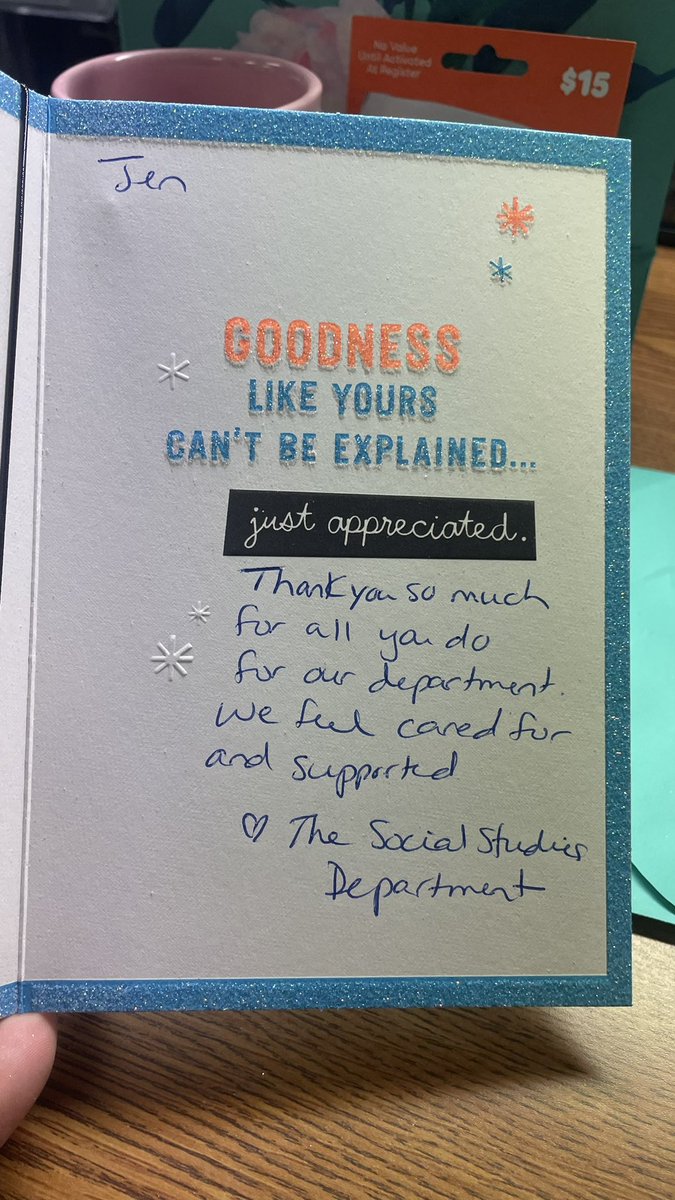 No Value
Until Activated
At Register
$15
Jen
GOODNESS
LIKE YOURS
CAN'T BE EXPLAINED...
just appreciated.
Thank you so much
for all you do
for our department.
We feel cared for
and supported
♡ The Social Studies
Department